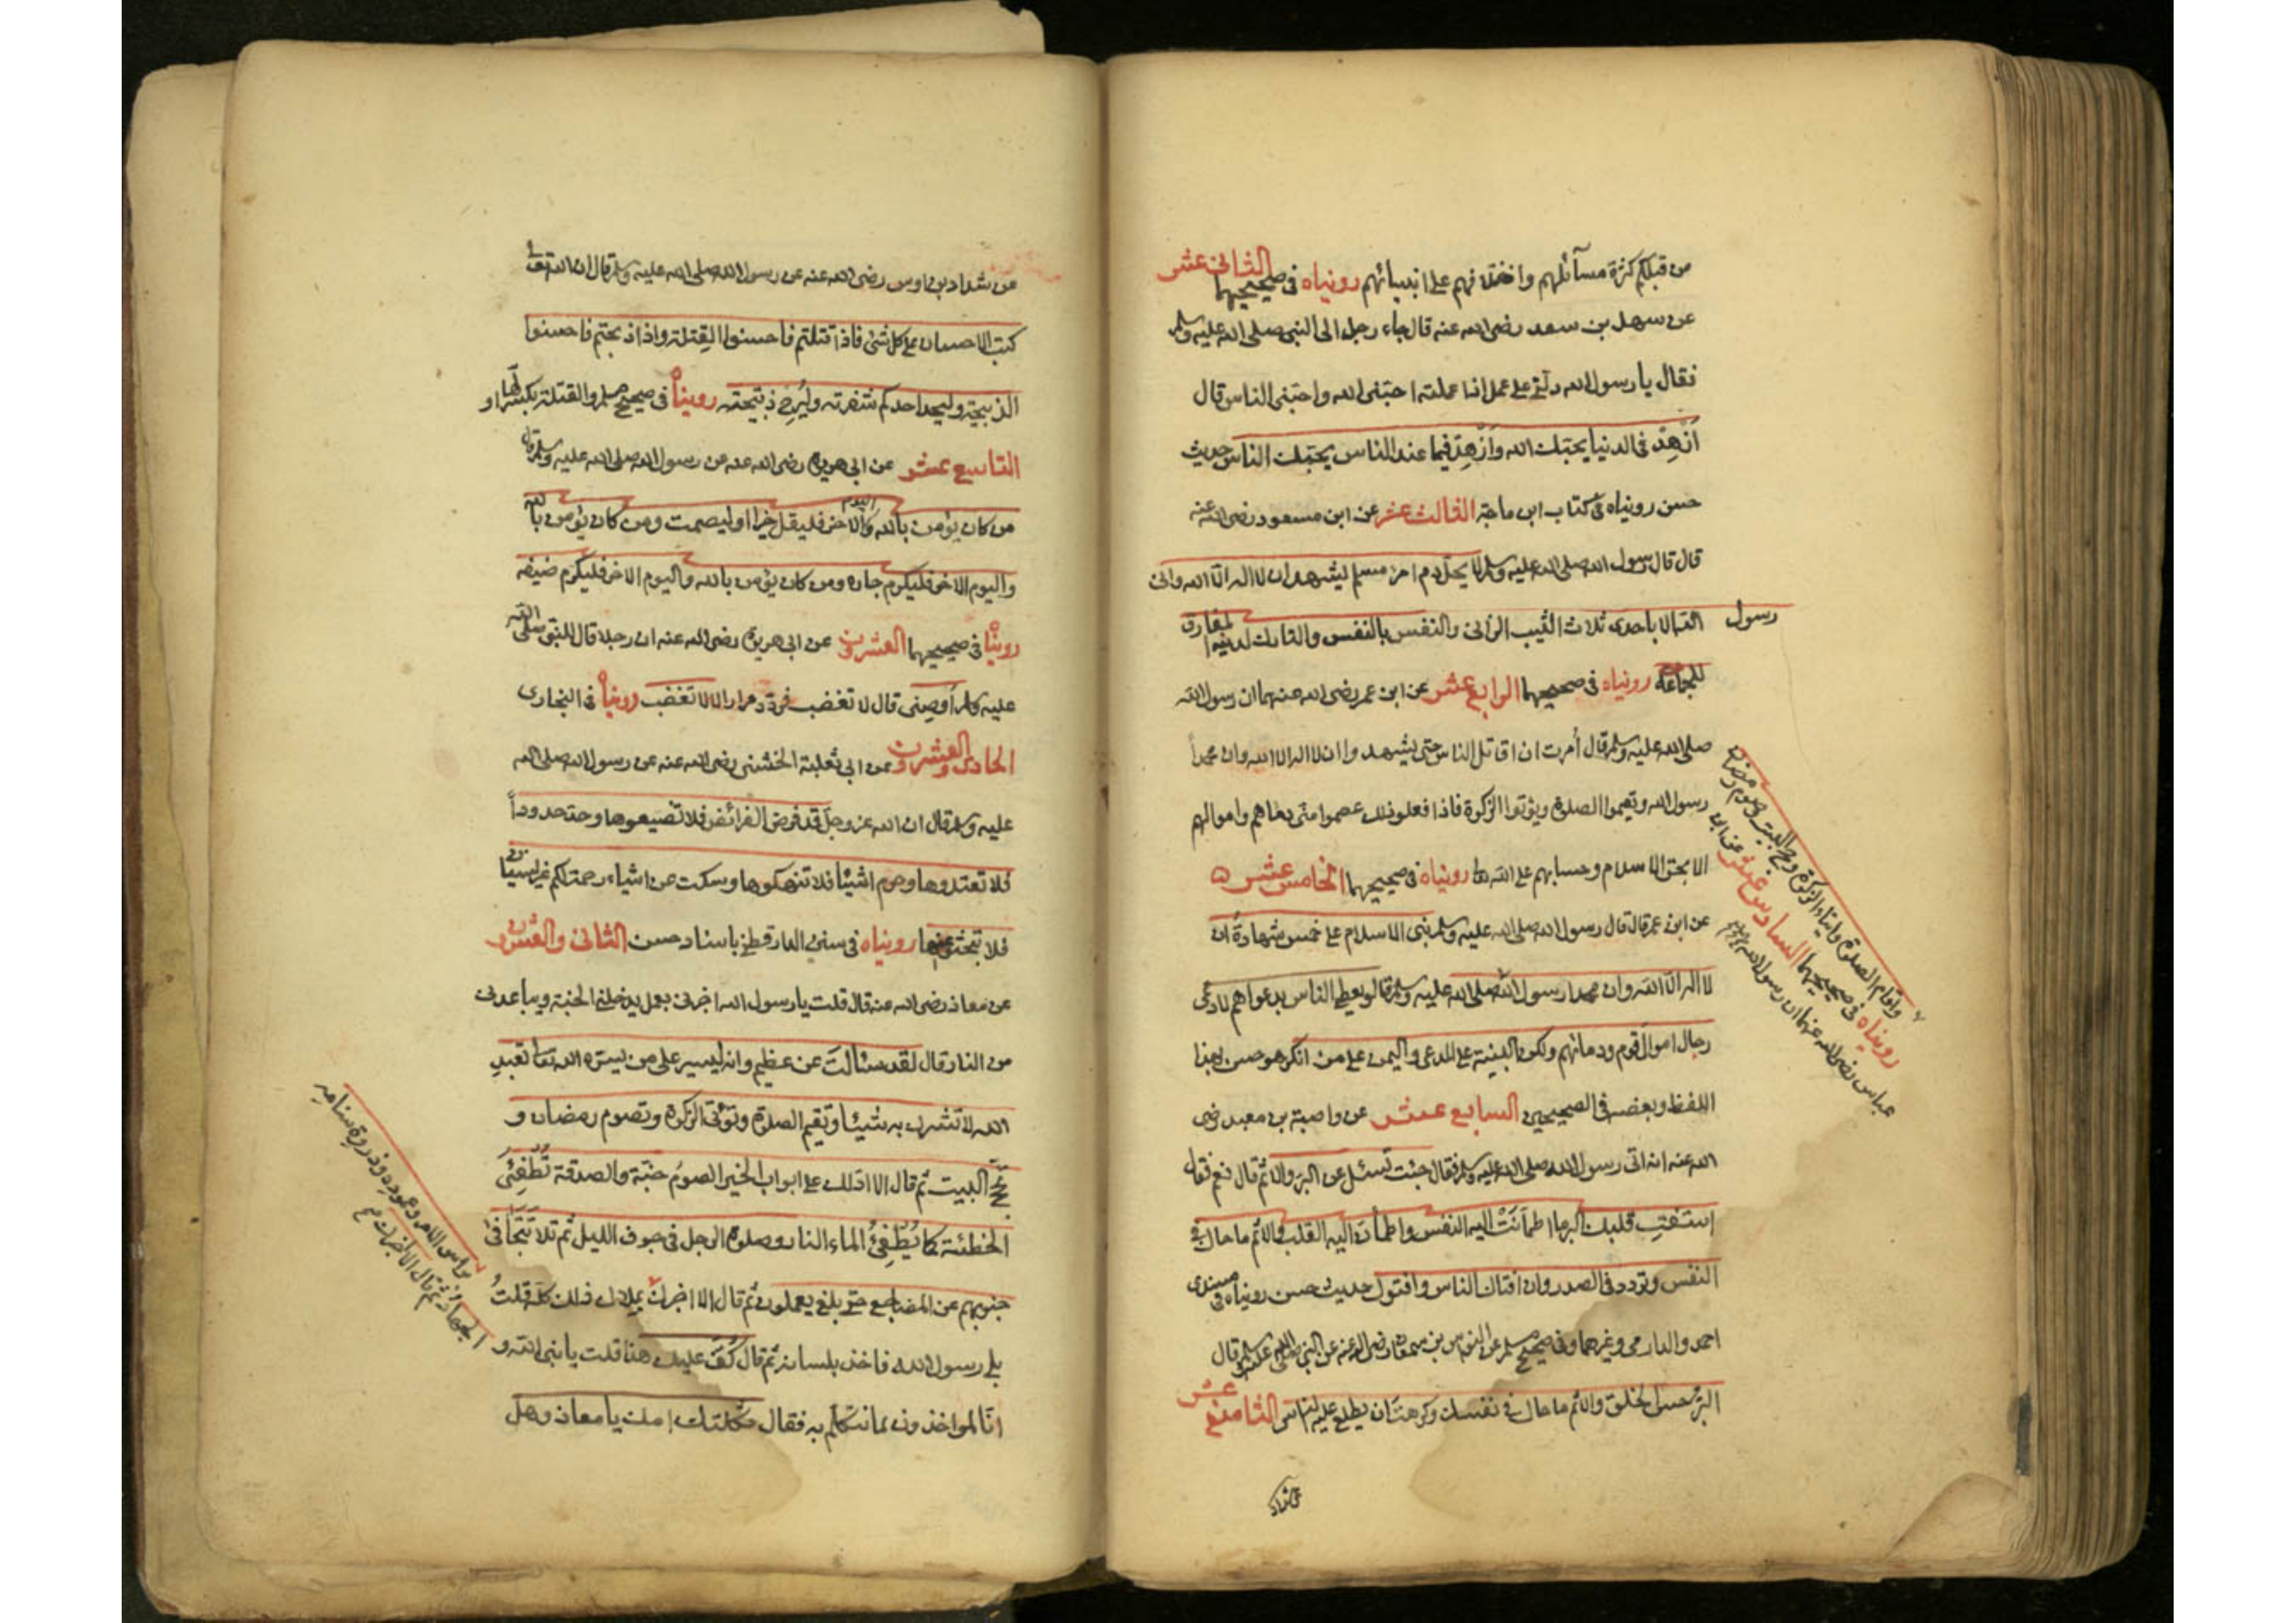 من قبلكم كثرة مسآئلهم واختلافهم على انبيائهم رويناه في صحيحيهما الثاني عشر
عن سهل بن سعد رضي الله عنه قال جاء رجل الى النبي صلى الله عليه وسلم
فقال يا رسول الله دلّني على عمل اذا عملته احبّني الله واحبّني الناس قال
اَزْهِدْ في الدنيا يحبّك الله وَازْهِدْ فيما عند الناس يحبّك الناس حديث
حسن رويناه في كتاب ابن ماجة الثالث عشر عن ابن مسعود رضي الله عنه
قال قال رسول الله صلى الله عليه وسلم لا يحلّ دم امرئ مسلم يشهد ان لا اله الّا الله واني
رسول الله الا باحدى ثلاث الثيب الزاني والنفس بالنفس والتارك لدينه المفارق
للجماعة رويناه في صحيحيهما الرابع عشر عن ابن عمر رضي الله عنهما ان رسول الله
صلى الله عليه وسلم قال أمرت ان اقاتل الناس حتى يشهدوا ان لا اله الا الله وان محمداً
رسول الله ويقيموا الصلوة ويؤتوا الزكوة فاذا فعلوا ذلك عصموا منّي دماهم واموالهم
الا بحق الاسلام وحسابهم على الله تعا رويناه في صحيحيهما الخامس عشر
عن ابن عمر قال قال رسول الله صلى الله عليه وسلم بني الاسلام على خمس شهادة ان
لا اله الّا الله وان محمدا رسول الله صلى الله عليه وسلم قال لو يعطى الناس بدعواهم لادّعى
رجال اموال قوم ودمائهم ولكن البينة على المدعي واليمين على من انكر هو حسن بهذا
اللفظ وبعضه في الصحيحين السابع عشر عن وابصة بن معبد رضي
الله عنه انه اتى رسول الله صلى الله عليه وسلم فقال جئت تسئل عن البرّ والاثم قال نعم فقال
استفتِ قلبك البر ما اطمأنّتْ اليه النفس واطمأن اليه القلب والاثم ما حاك في
النفس وتردد في الصدر وان افتاك الناس وافتوك حديث حسن رويناه في مسندي
احمد والدارمي وغيرهما وفي صحيح مسلم عن النواس بن سمعان رضي الله عنه عن النبي صلى الله عليه وسلم قال
البرّ حسن الخلق والاثم ما حاك في نفسك وكرهت ان يطلع عليه الناس الثامن عشر
واقام الصلوة وايتاء الزكوة وحج البيت وصوم رمضان
رويناه في صحيحيهما السادس عشر عن ابن
عباس رضي الله عنهما ان رسول الله
عن شداد
عن شداد بن اوس رضي الله عنه عن رسول الله صلى الله عليه وسلم قال ان الله تعالى
كتب الاحسان على كل شئ فاذا قتلتم فاحسنوا القِتلة واذا ذبحتم فاحسنوا
الذبيحة وليحد احدكم شفرته وليُرِح ذبيحته رويناه في صحيح مسلم والقتلة بكسر اولها
التاسع عشر عن ابي هريرة رضي الله عنه عن رسول الله صلى الله عليه وسلم قال
من كان يؤمن بالله واليوم الاخر فليقل خيرا او ليصمت ومن كان يؤمن بالله
واليوم الاخر فليكرم جاره ومن كان يؤمن بالله واليوم الاخر فليكرم ضيفه
رويناه في صحيحيهما العشرون عن ابي هريرة رضي الله عنه ان رجلا قال للنبي صلى الله
عليه وسلم أوصِني قال لا تغضب فردّد مرارا قال لا تغضب رويناه في البخاري
الحادي والعشرون عن ابي ثعلبة الخشني رضي الله عنه عن رسول الله صلى الله
عليه وسلم قال ان الله عز وجلّ قد فرض الفرائض فلا تضيعوها وحدّ حدوداً
فلا تعتدوها وحرم اشيئا فلا تنهكوها وسكت عن اشياء رحمة لكم غير نسيان
فلا تبحثوا عنها رويناه في سنن الدارقطني باسناد حسن الثاني والعشرون
عن معاذ رضي الله عنه قال قلت يا رسول الله اخبرني بعمل يدخلني الجنة ويباعدني
من النار قال لقد سئالتَ عن عظيم وانه ليسير على من يسّره الله تعا تعبد
الله لا تشرك به شيئا وتقيم الصلوة وتؤتي الزكوة وتصوم رمضان و
تحجّ البيت ثم قال الا ادلك على ابواب الخير الصومُ جنّة والصدقة تُطْفِئُ
الخطئة كما يُطْفِئُ الماء النار وصلوة الرجل في جوف الليل ثم تلا تَتَجَافى
جنوبهم عن المضاجع حتى بلغ يعملون ثم قال الا اخبرك بملاك ذلك كلّه قلتُ
بلى رسول الله فاخذ بلسانه ثم قال كُفّ عليك هذا قلت يا نبي الله و
انّا لمواخذون بما نتكلّم به فقال ثكلتك امك يا معاذ وهل
براس الامر وعموده وذروة سنامه
الجهاد ثم قال الا اخبرك